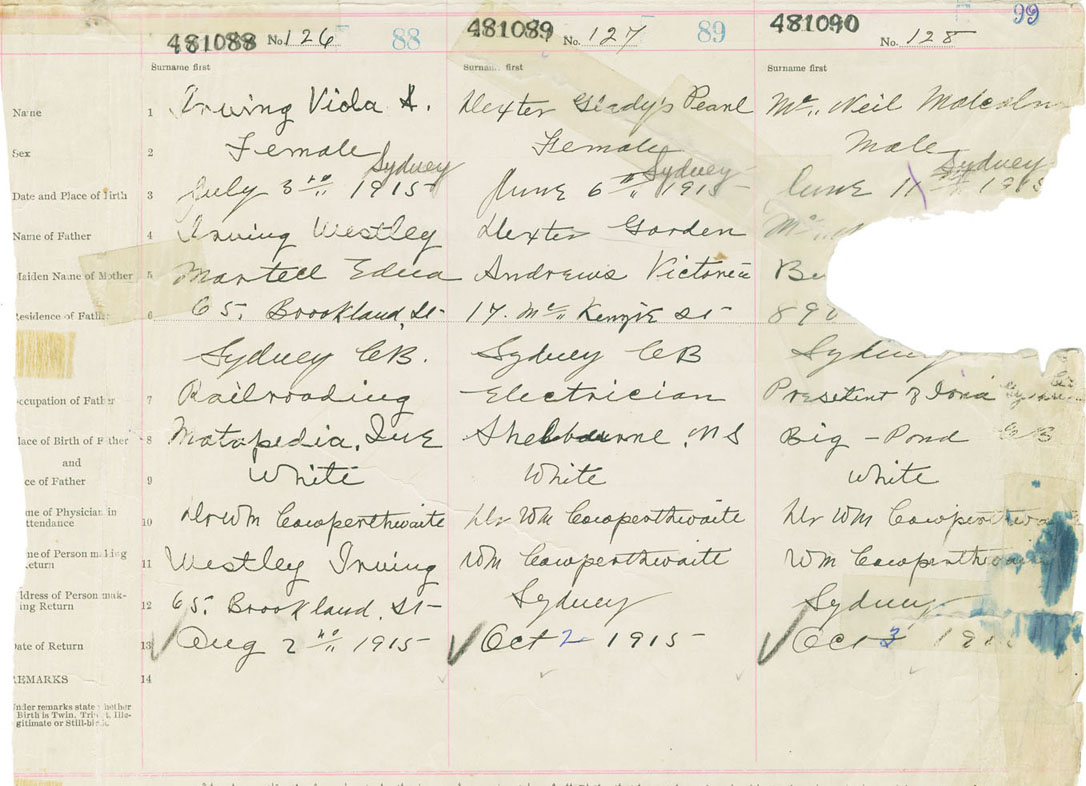 99
481088 No. 126 88 481089 No. 127 89 481090 No. 128
Surname first Surname first Surname first
Name 1 Irving Viola A. Dexter Glady's Pearl Mc,, Neil Malcolm
Sex 2 Female Female Male
Sydney Sydney Sydney
Date and Place of Birth 3 July 3rd 1915 June 6th 1915 June 11th 1915
Name of Father 4 Irving Westley Dexter Gorden Mc
Maiden Name of Mother 5 Martell Edna Andrews Victoria Be
Residence of Father 6 65. Brookland, St 17. Mc Kenzie St 89
Sydney CB. Sydney CB Sydney
Occupation of Father 7 Railroading Electrician
Place of Birth of Father 8 Matapedia, Shelbourne, NS Big - Pond CB
and
ce of Father 9 White White White
me of Physician in
ttendance 10 Dr Wm Cowperthwaite Dr Wm Cowperthwaite Dr Wm Cowperthwaite
me of Person making
eturn 11 Westley Irving Wm Cowperthwaite Wm Cowperthwaite
ddress of Person mak-
ing Return 12 65. Brookland. St Sydney Sydney
Date of Return 13 Aug 2nd 1915 Oct 2 1915 Oct 3 191
REMARKS 14
Under remarks state whether
Birth is Twin, Triplet, Ille-
gitimate or Still-birth.